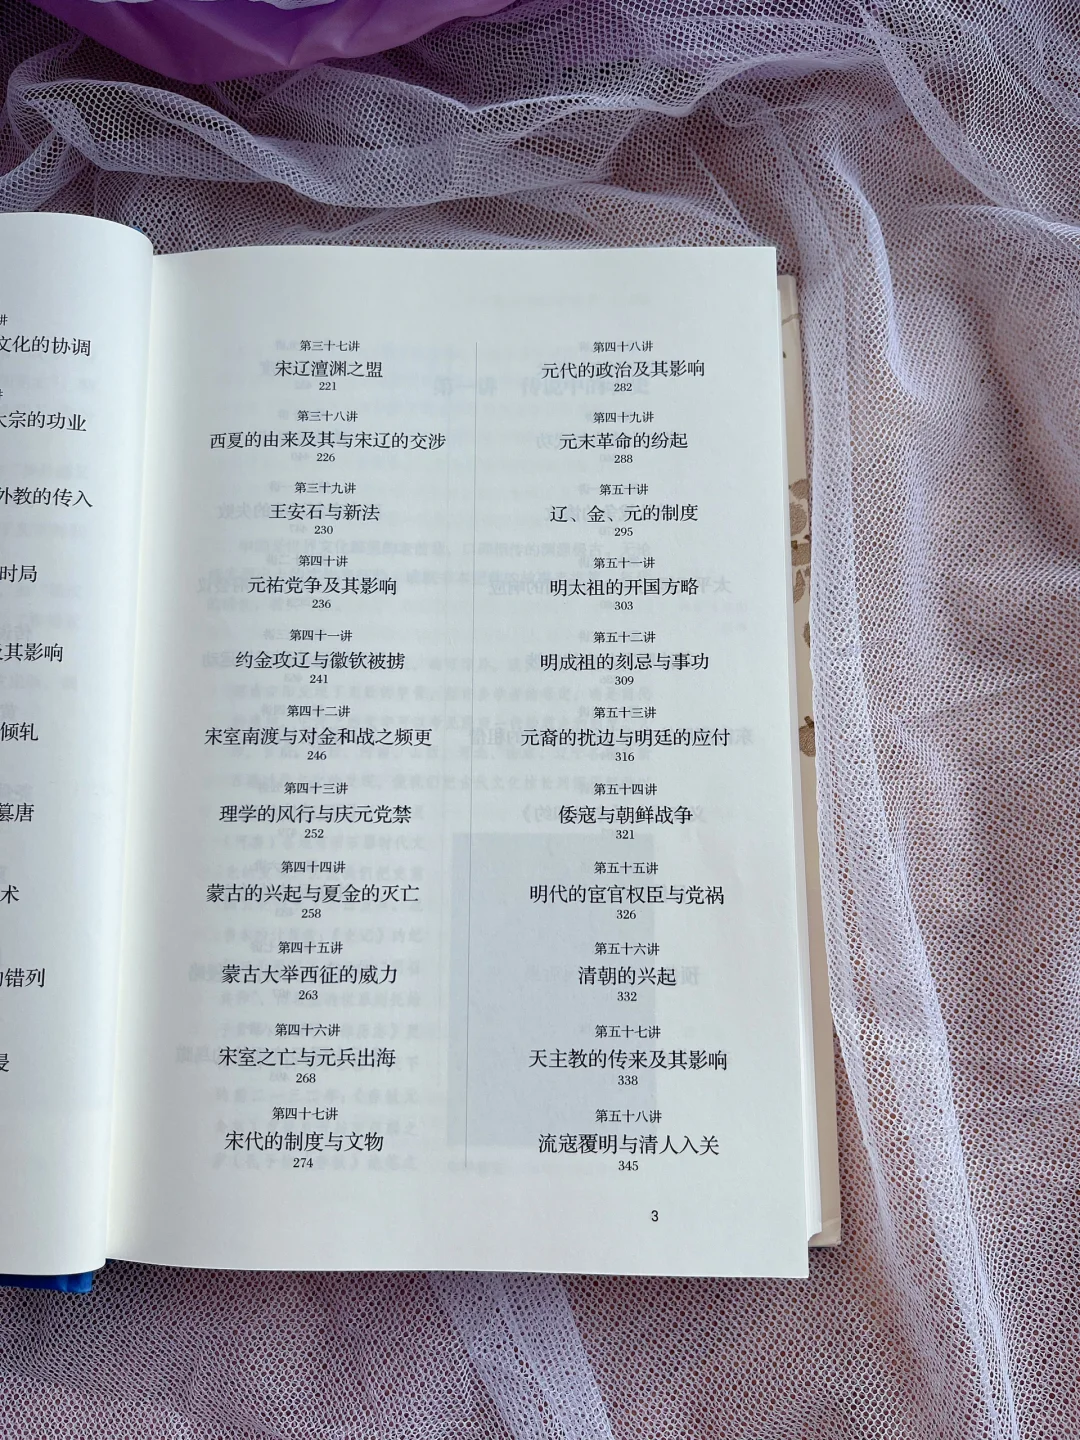 讲
文化的协调
讲
太宗的功业
外教的传入
时局
及其影响
倾轧
篡唐
术
的错列
第三十七讲
宋辽澶渊之盟
221
第三十八讲
西夏的由来及其与宋辽的交涉
226
第三十九讲
王安石与新法
230
第四十讲
元祐党争及其影响
236
第四十一讲
约金攻辽与徽钦被掳
241
第四十二讲
宋室南渡与对金和战之频更
246
第四十三讲
理学的风行与庆元党禁
252
第四十四讲
蒙古的兴起与夏金的灭亡
258
第四十五讲
蒙古大举西征的威力
263
第四十六讲
宋室之亡与元兵出海
268
第四十七讲
宋代的制度与文物
274
第四十八讲
元代的政治及其影响
282
第四十九讲
元末革命的纷起
288
第五十讲
辽、金、元的制度
295
第五十一讲
明太祖的开国方略
303
第五十二讲
明成祖的刻忌与事功
309
第五十三讲
元裔的扰边与明廷的应付
316
第五十四讲
倭寇与朝鲜战争
321
第五十五讲
明代的宦官权臣与党祸
326
第五十六讲
清朝的兴起
332
第五十七讲
天主教的传来及其影响
338
第五十八讲
流寇覆明与清人入关
345
3